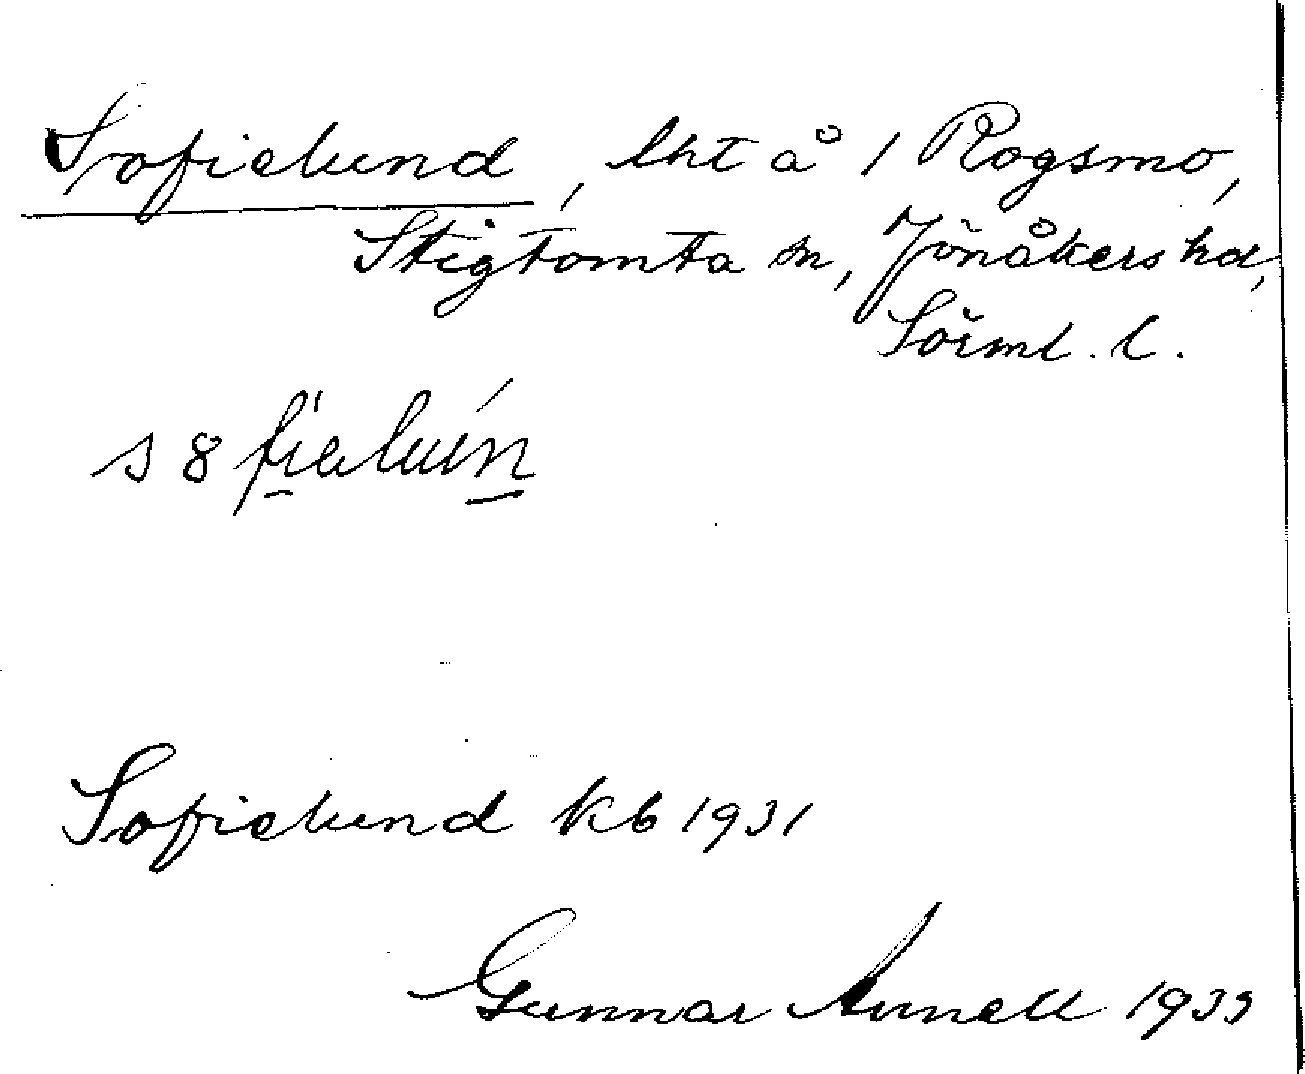 Sofielund, lht å 1 Rogsmo,
Stigtomta sn, Jönåkers hd,
Sörml. l.
Sofielund kb 1931
Gunnar Annell 1933